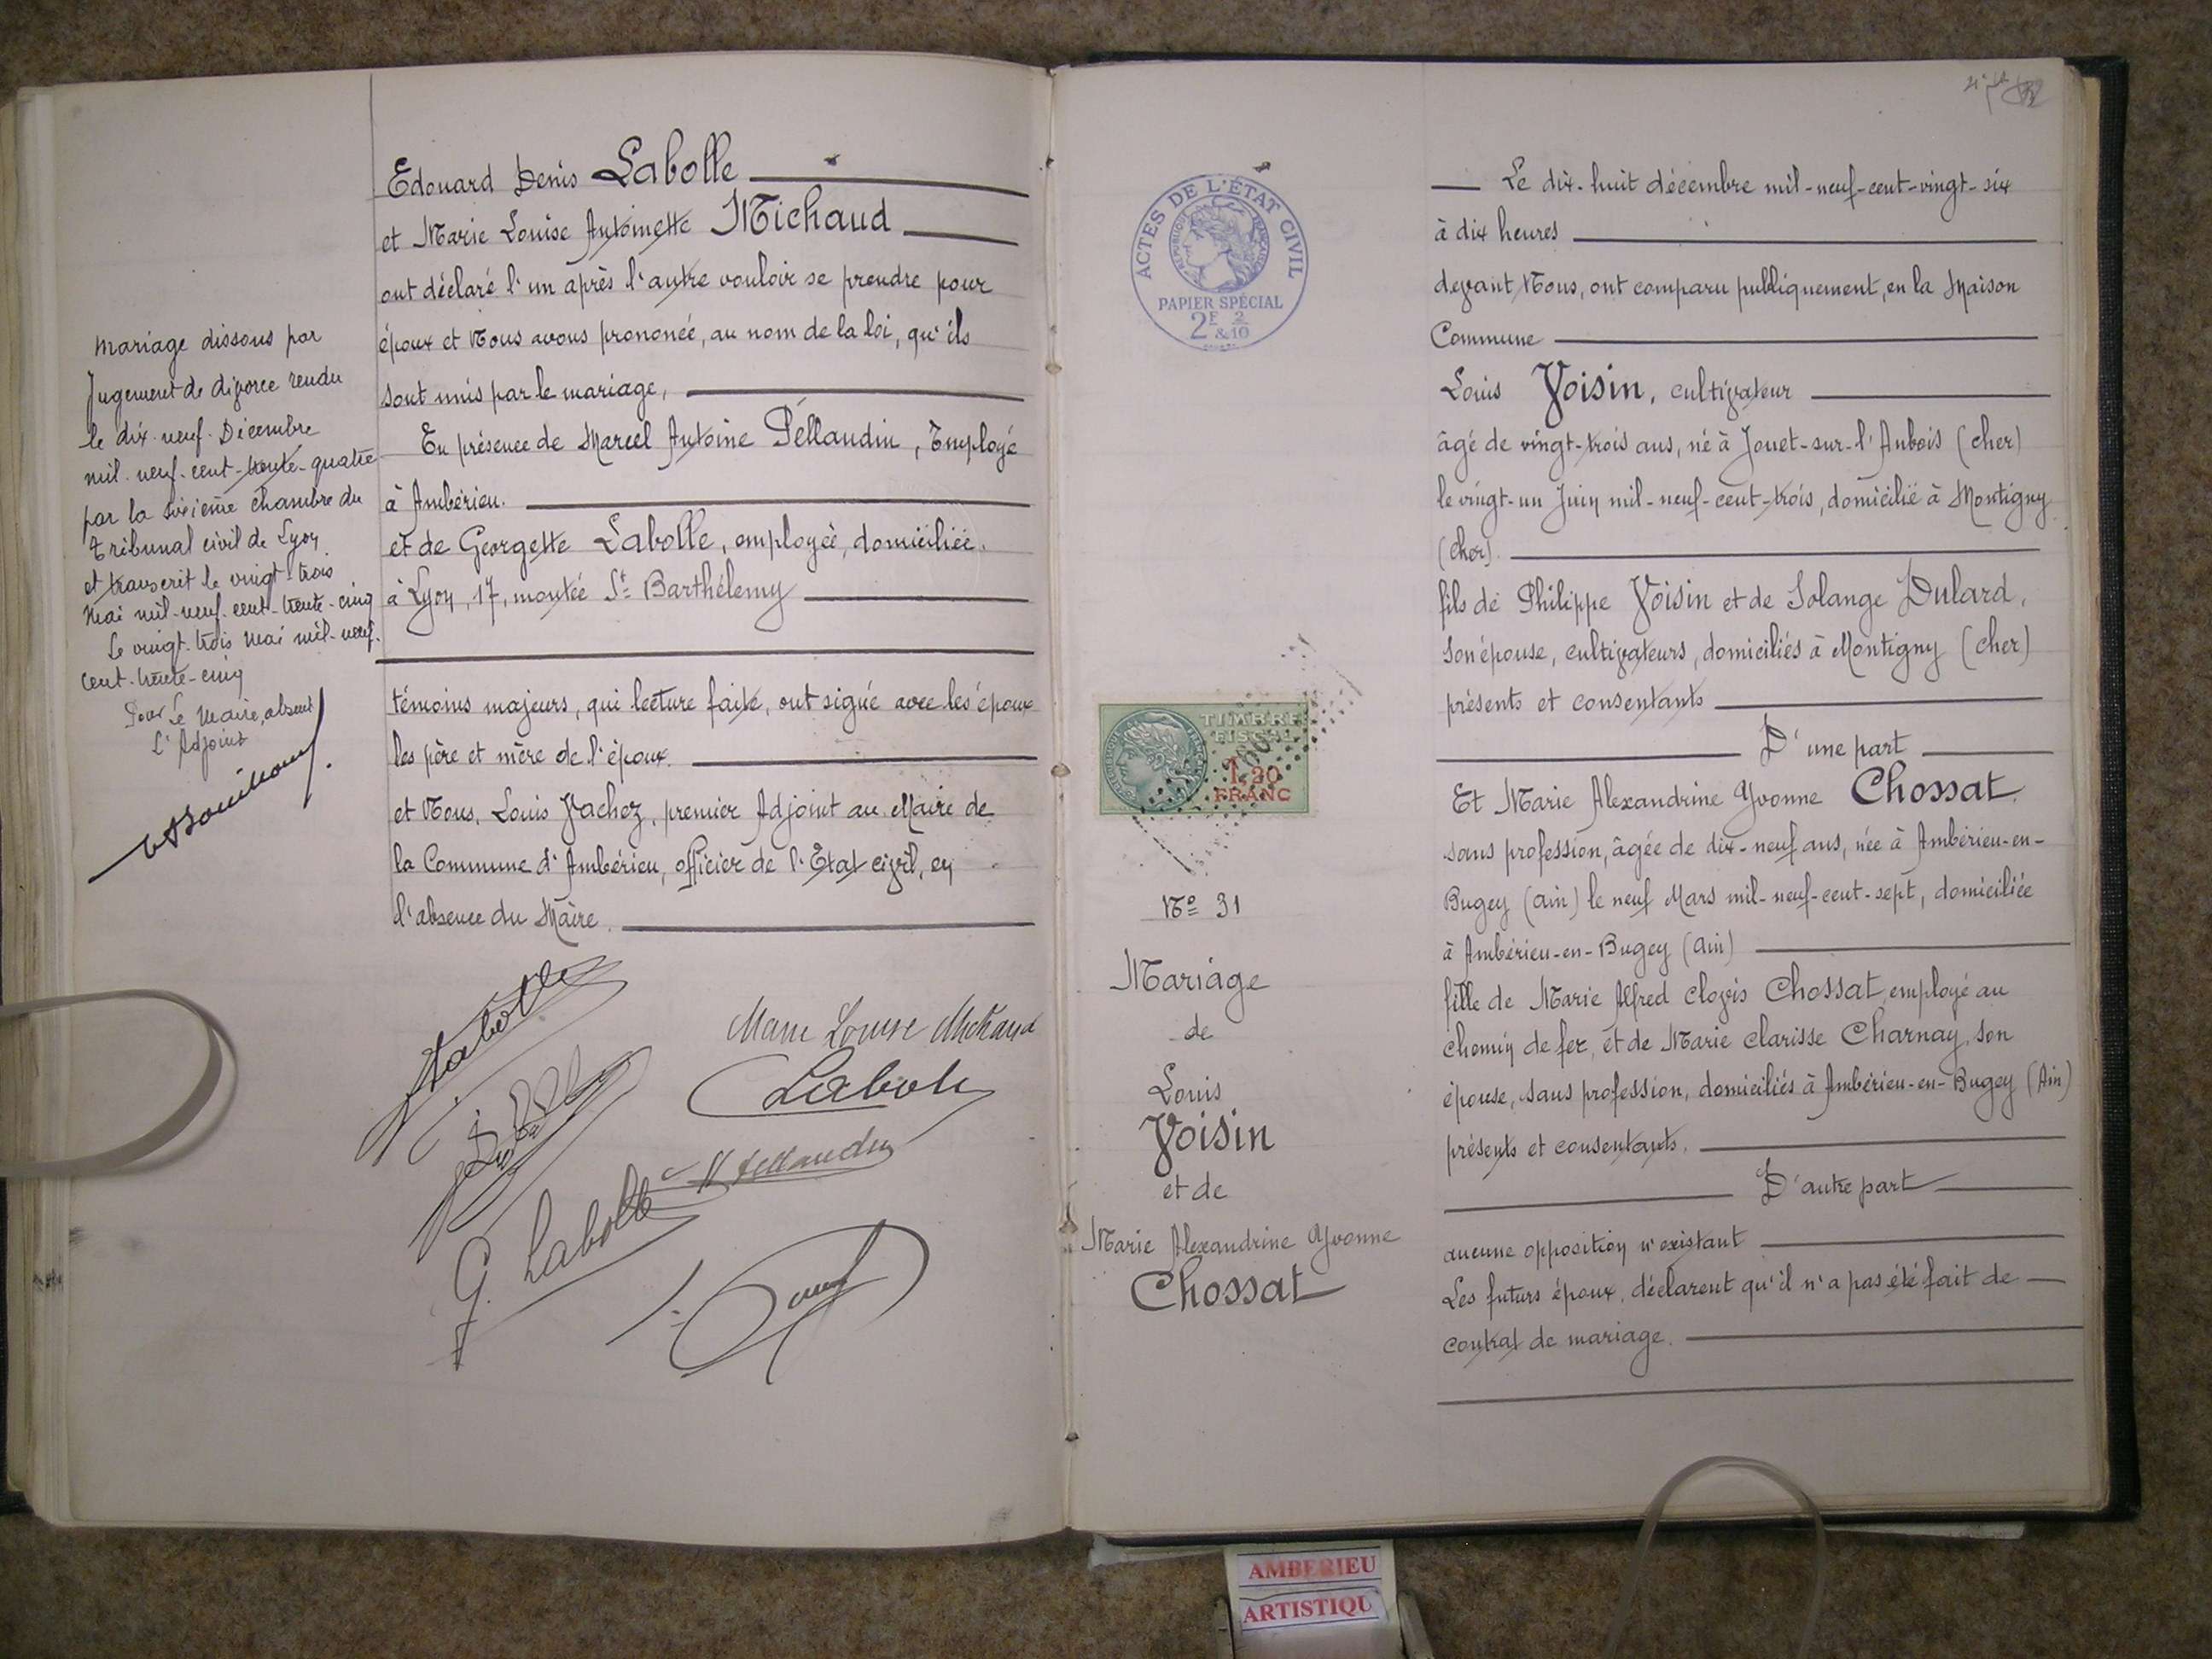 Edouard Denis Labolle
et Marie Louise Antoinette Michaud
ont déclaré l'un après l'autre vouloir se prendre pour
époux et Nous avons prononcé, au nom de la loi, qu'ils
sont unis par le mariage,
En présence de Marcel Antoine Péllaudin, Employé
à Ambérieu.
et de Georgette Labolle, employée, domiciliée.
à Lyon, 17, montée St Barthélemy
témoins majeurs, qui lecture faite, ont signé avec les époux
les père et mère de l'époux.
et Nous, Louis Vachez, premier Adjoint au Maire de
la Commune d'Ambérieu, officier de l'Etat civil, en
l'absence du Maire.
Mariage dissous par
Jugement de divorce rendu
le dix-neuf-Décembre
mil-neuf-cent-trente-quatre
par la sixième chambre du
Tribunal civil de Lyon
et transcrit le vingt-trois
Mai mil-neuf-cent-trente-cinq
Le vingt-trois Mai mil-neuf-
cent-trente-cinq
Pour Le Maire, absent
L'Adjoint
Labolle
Marie Louise Michaud
G. Labolle
ACTES DE L'ÉTAT CIVIL
RÉPUBLIQUE FRANÇAISE
PAPIER SPÉCIAL
2F 2
&10
TIMBRE
FISCAL
1,20
FRANC
No 31
Mariage
de
Louis
Voisin
et de
Marie Alexandrine Yvonne
Chossat
Le dix-huit décembre mil-neuf-cent-vingt-six
à dix heures
devant Nous, ont comparu publiquement, en la Maison
Commune
Louis Voisin, cultivateur
âgé de vingt-trois ans, né à Jouet-sur-l'Aubois (cher)
le vingt-un Juin mil-neuf-cent-trois, domicilié à Montigny
(cher).
fils de Philippe Voisin et de Solange Dulard,
son épouse, cultivateurs, domiciliés à Montigny (cher)
présents et consentants
D'une part
Et Marie Alexandrine Yvonne Chossat,
sans profession, âgée de dix-neuf ans, née à Ambérieu-en-
Bugey (ain) le neuf Mars mil-neuf-cent-sept, domiciliée
à Ambérieu-en-Bugey (ain)
fille de Marie Alfred Clovis Chossat, employé au
chemin de fer, et de Marie Clarisse Charnay, son
épouse, sans profession, domiciliés à Ambérieu-en-Bugey (Ain)
présents et consentants.
D'autre part
aucune opposition n'existant
Les futurs époux, déclarent qu'il n'a pas été fait de
contrat de mariage.
AMBERIEU
ARTISTIQU